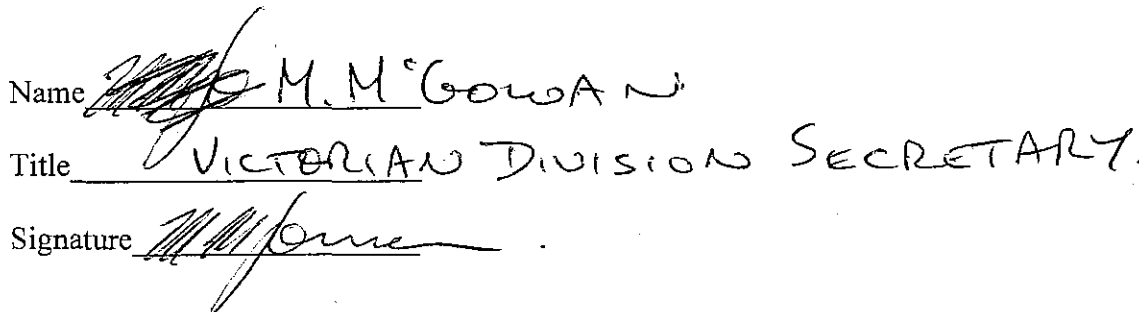 Name M. McGOWAN
Title VICTORIAN DIVISION SECRETARY.
Signature